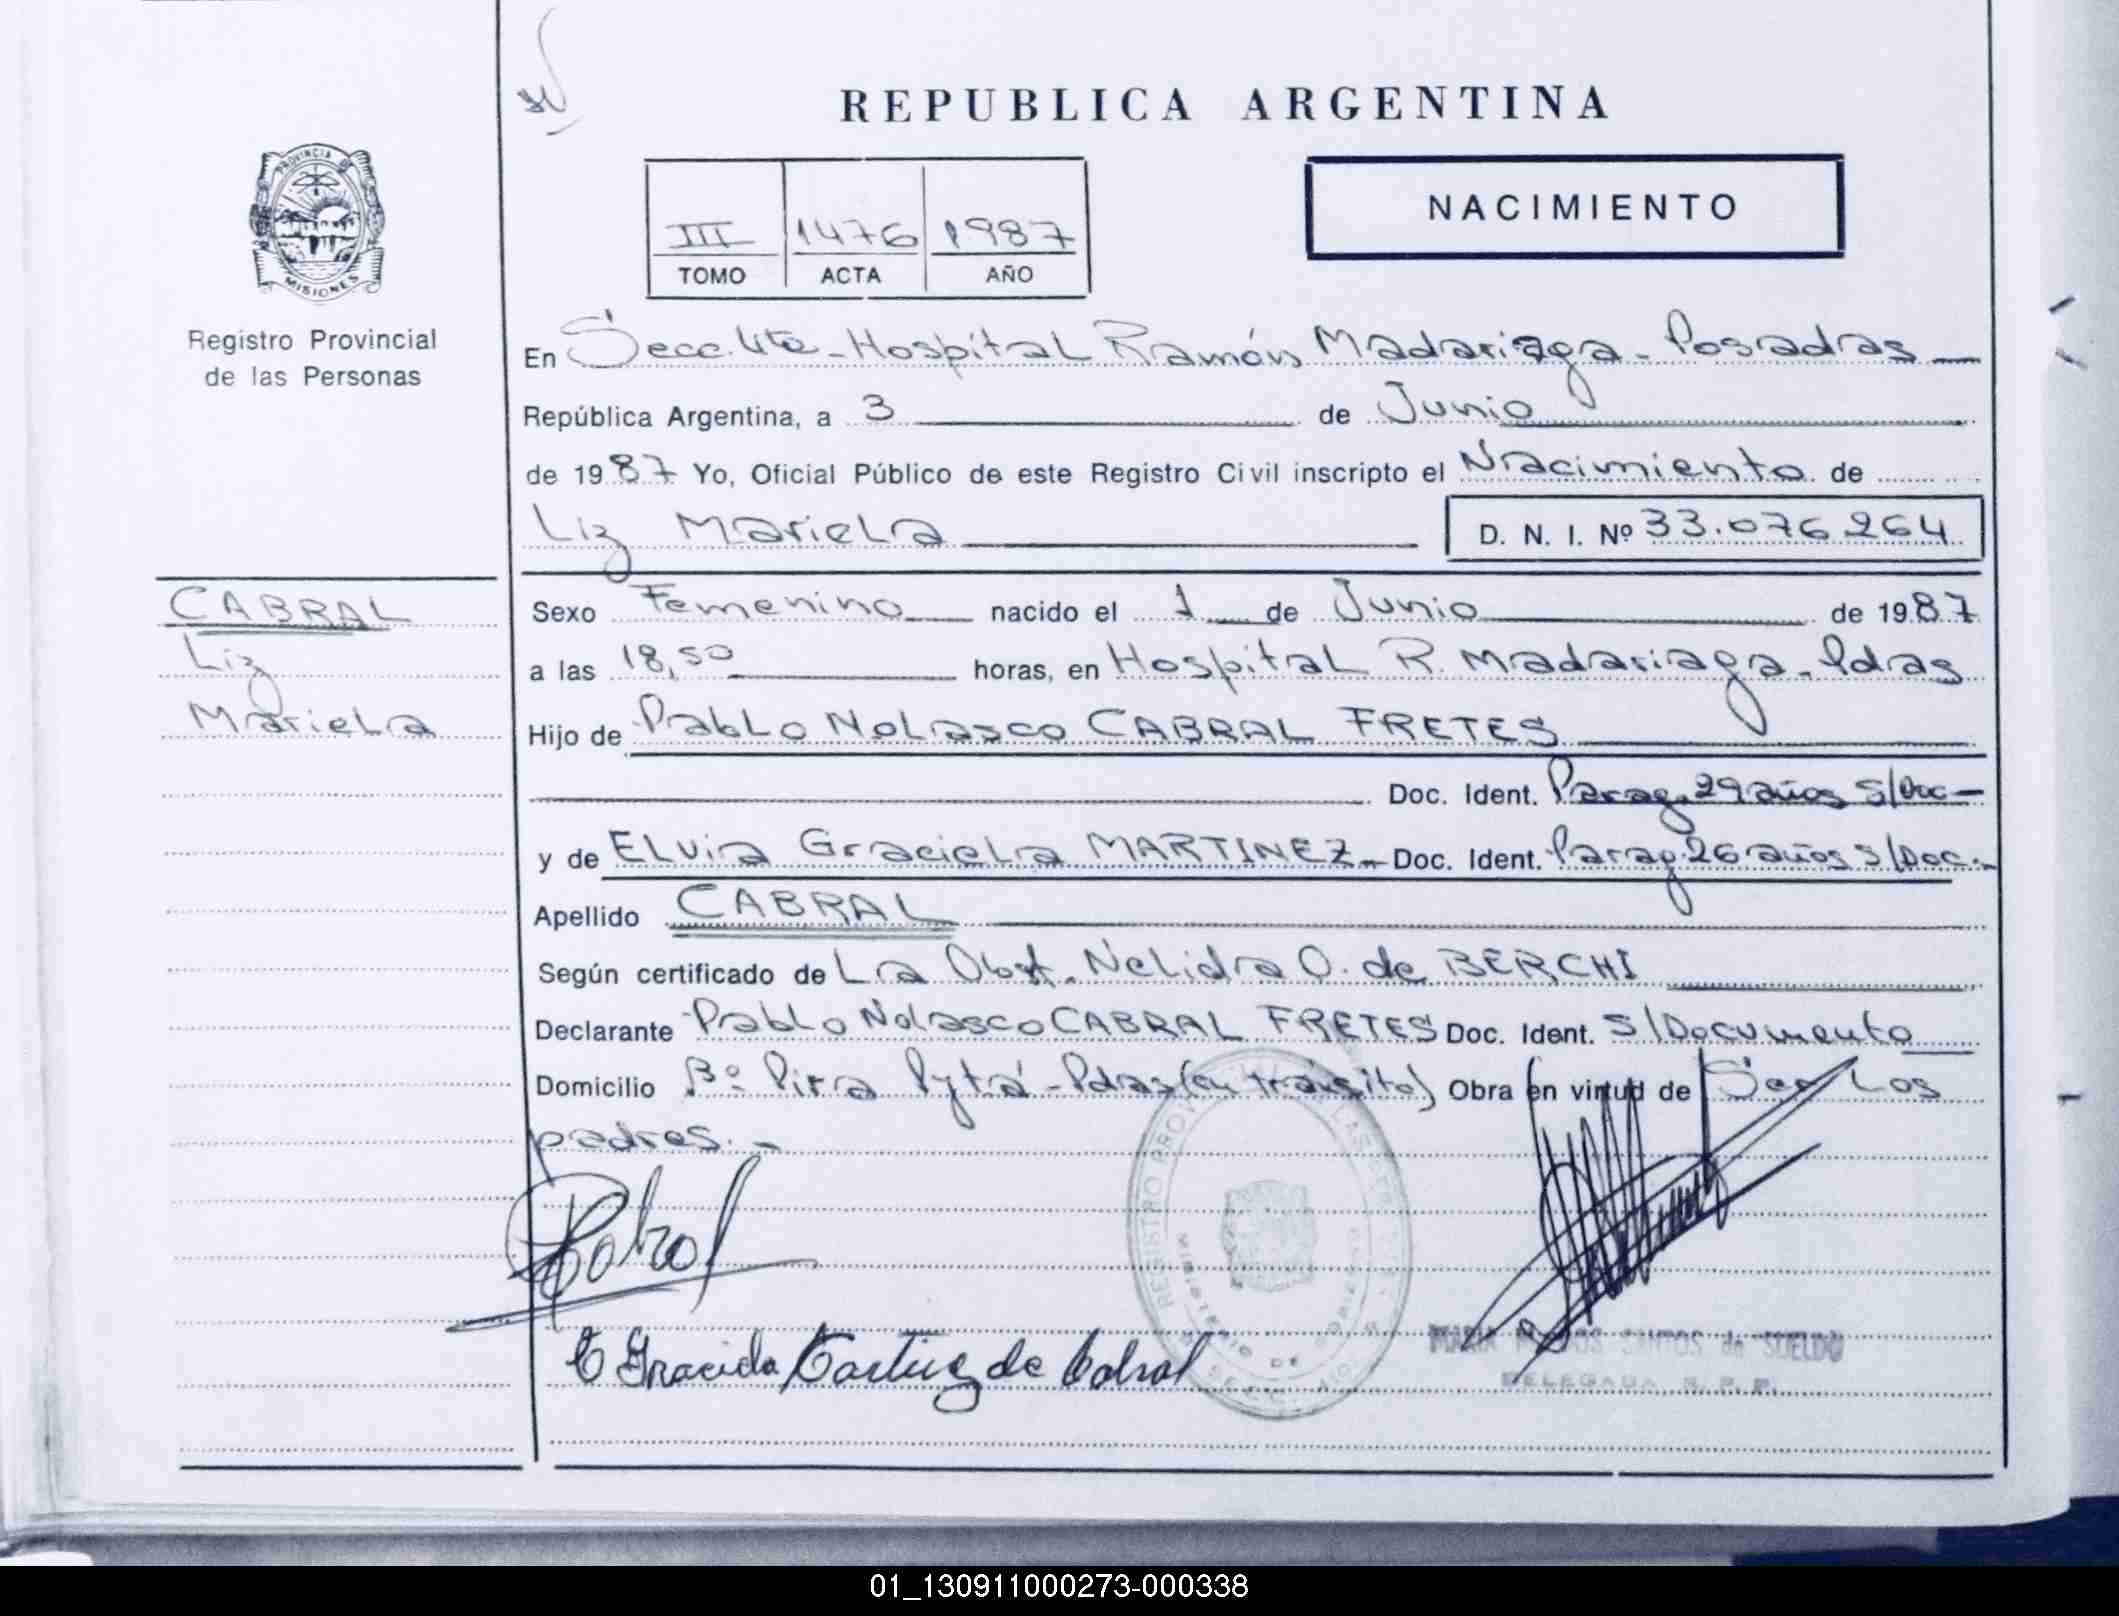 REPUBLICA ARGENTINA
PROVINCIA DE
MISIONES
Registro Provincial
de las Personas
III 1476 1987
TOMO ACTA AÑO
NACIMIENTO
En Secc. 4ta - Hospital Ramón Madariaga - Posadas
República Argentina, a 3 de Junio
de 1987 Yo, Oficial Público de este Registro Civil inscripto el Nacimiento de
Liz Mariela D. N. I. Nº 33.076.264
CABRAL
Liz
Mariela
Sexo Femenino nacido el 1 de Junio de 1987
a las 18,50 horas, en Hospital R. Madariaga - Pdas
Hijo de Pablo Nolasco CABRAL FRETES
Doc. Ident. Parag. 29 años S/Doc -
y de Elvia Graciela MARTINEZ - Doc. Ident. Parag. 26 años S/Doc. -
Apellido CABRAL
Según certificado de La Obst. Nelida O. de BERCHI
Declarante Pablo Nolasco CABRAL FRETES Doc. Ident. S/Documento
Domicilio Bº Pira Pytá - Pdas (en tránsito) Obra en virtud de Ser Los
padres. -
Cabral
REGISTRO PROVINCIAL DE LAS PERSONAS
MINISTERIO DE GOBIERNO
E Graciela Martinez de Cabral
MARIA SANTOS de SUELDO
DELEGADA R. P. P.
01_130911000273-000338